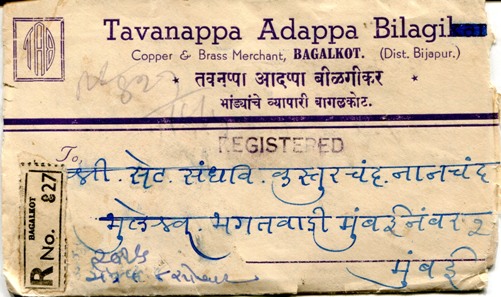 TAB
Tavanappa Adappa Bilagikar
Copper & Brass Merchant, BAGALKOT. (Dist. Bijapur.)
* तवनप्पा आदप्पा बीळगीकर *
भांड्यांचे व्यापारी बागलकोट.
REGISTERED
To,
श्री. सेट. संघवि. कस्तुरचंद. नानचंद
भुलेश्वर. भगतवाडी मुंबई नंबर २
मुंबई
BAGALKOT
R No. 827